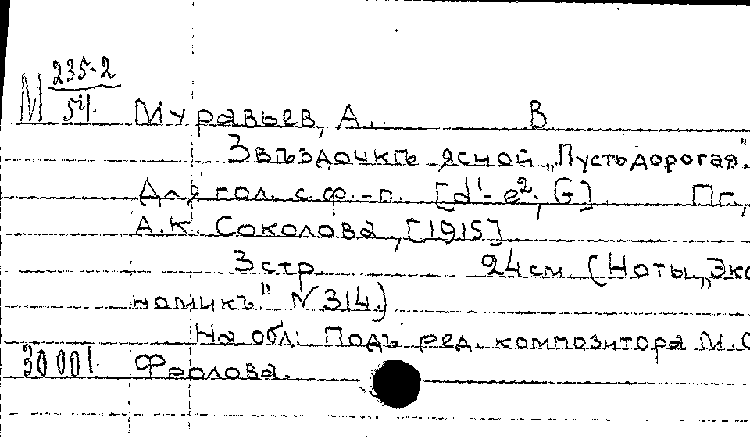 М 235-2
54
Муравьев, А. В
Звѣздочкѣ ясной „Пусть дорогая".
Для гол. с ф.-п. [d'-e²; G] Пг.,
А.К. Соколова, [1915]
3 стр. 24 см. (Ноты „Эко
номикъ" N 314.)
На обл: Подъ ред. композитора М.
30 001 Фролова.